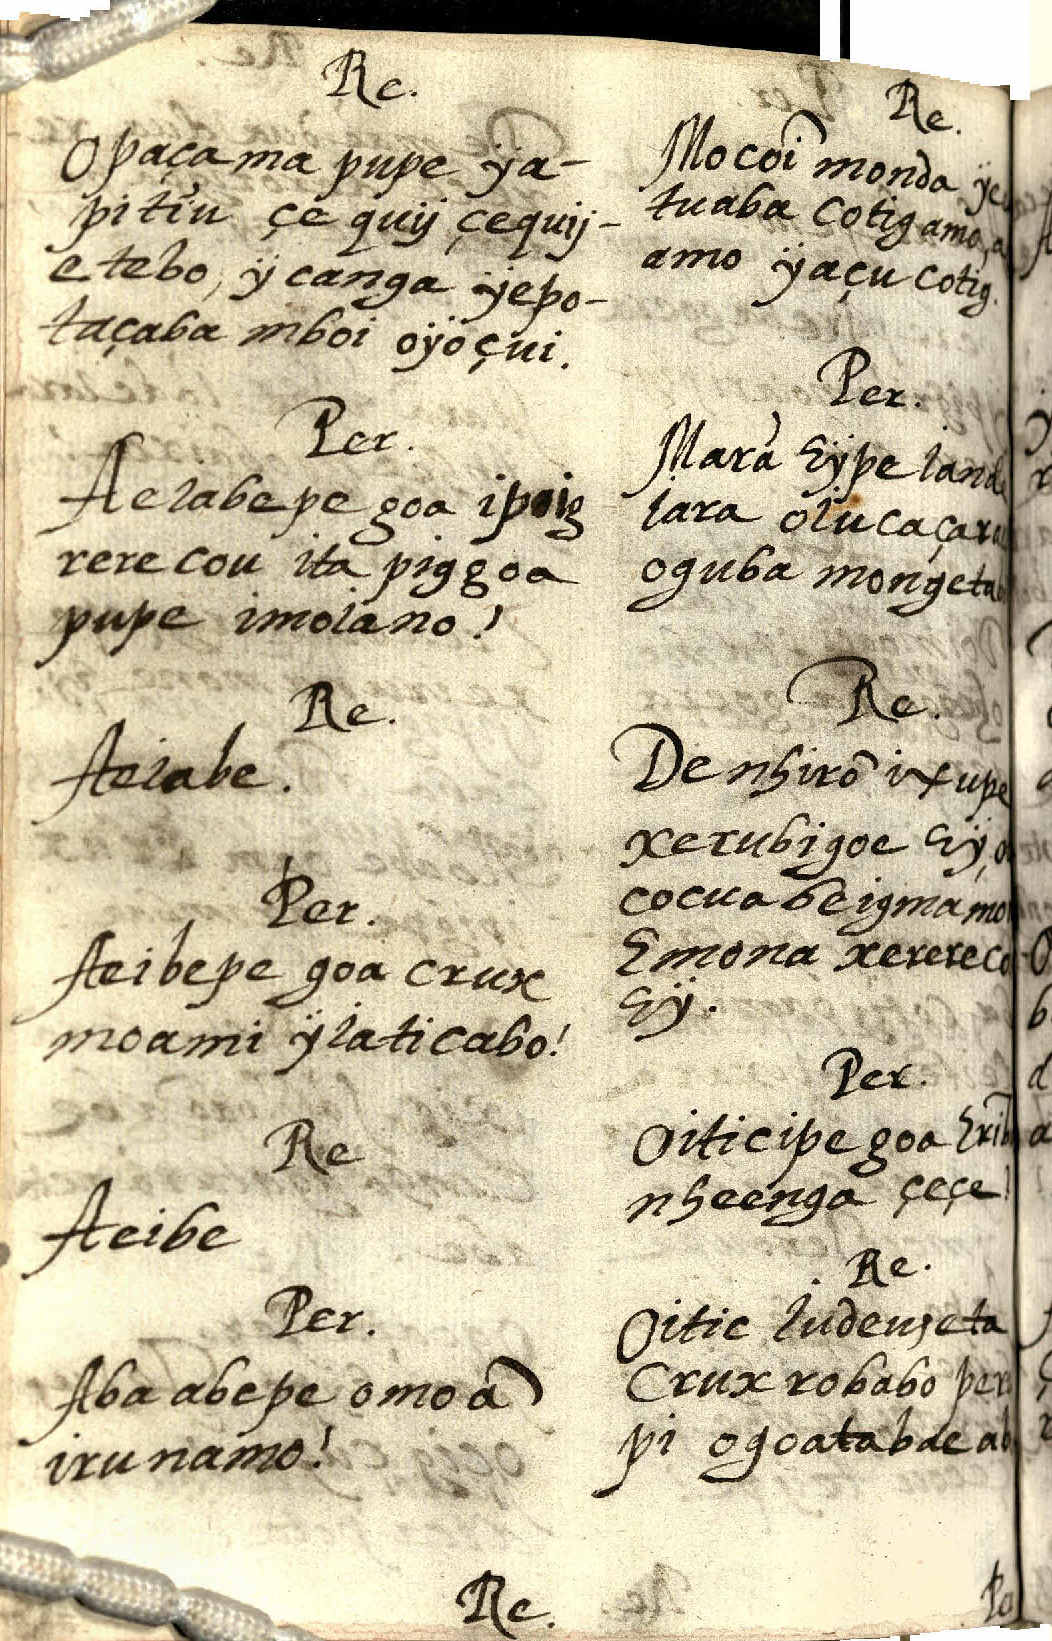 Re.
Opaçama pupe ÿa-
pitĩu çe quij çequij-
etebo, ÿ canga ÿepo-
taçaba mboi oÿoçui.
Per.
Aeiabepe goa ipoig
rerecou ita piggoa
pupe imoiano!
Re.
Aeiabe.
Per.
Aeibepe goa crux
moami ÿiaticabo!
Re
Aeibe
Per.
Aba abepe omoã
irunamo!
Re.
Re.
Mocoĩ monda
tuaba cotigamo,
amo ÿaçu cotig.
Per.
Marã Eÿpe
iara oiucaçara
oguba mongeta
Re.
De nhirõ ixupe
xerubigoe Eÿ,
cocuabeigmamo
Emona xerereco
Eÿ.
Per.
Oiticipe goa
nheenga çeçe!
Re.
Oitic Iudeuseta
Crux robabo
pi ogoatabae